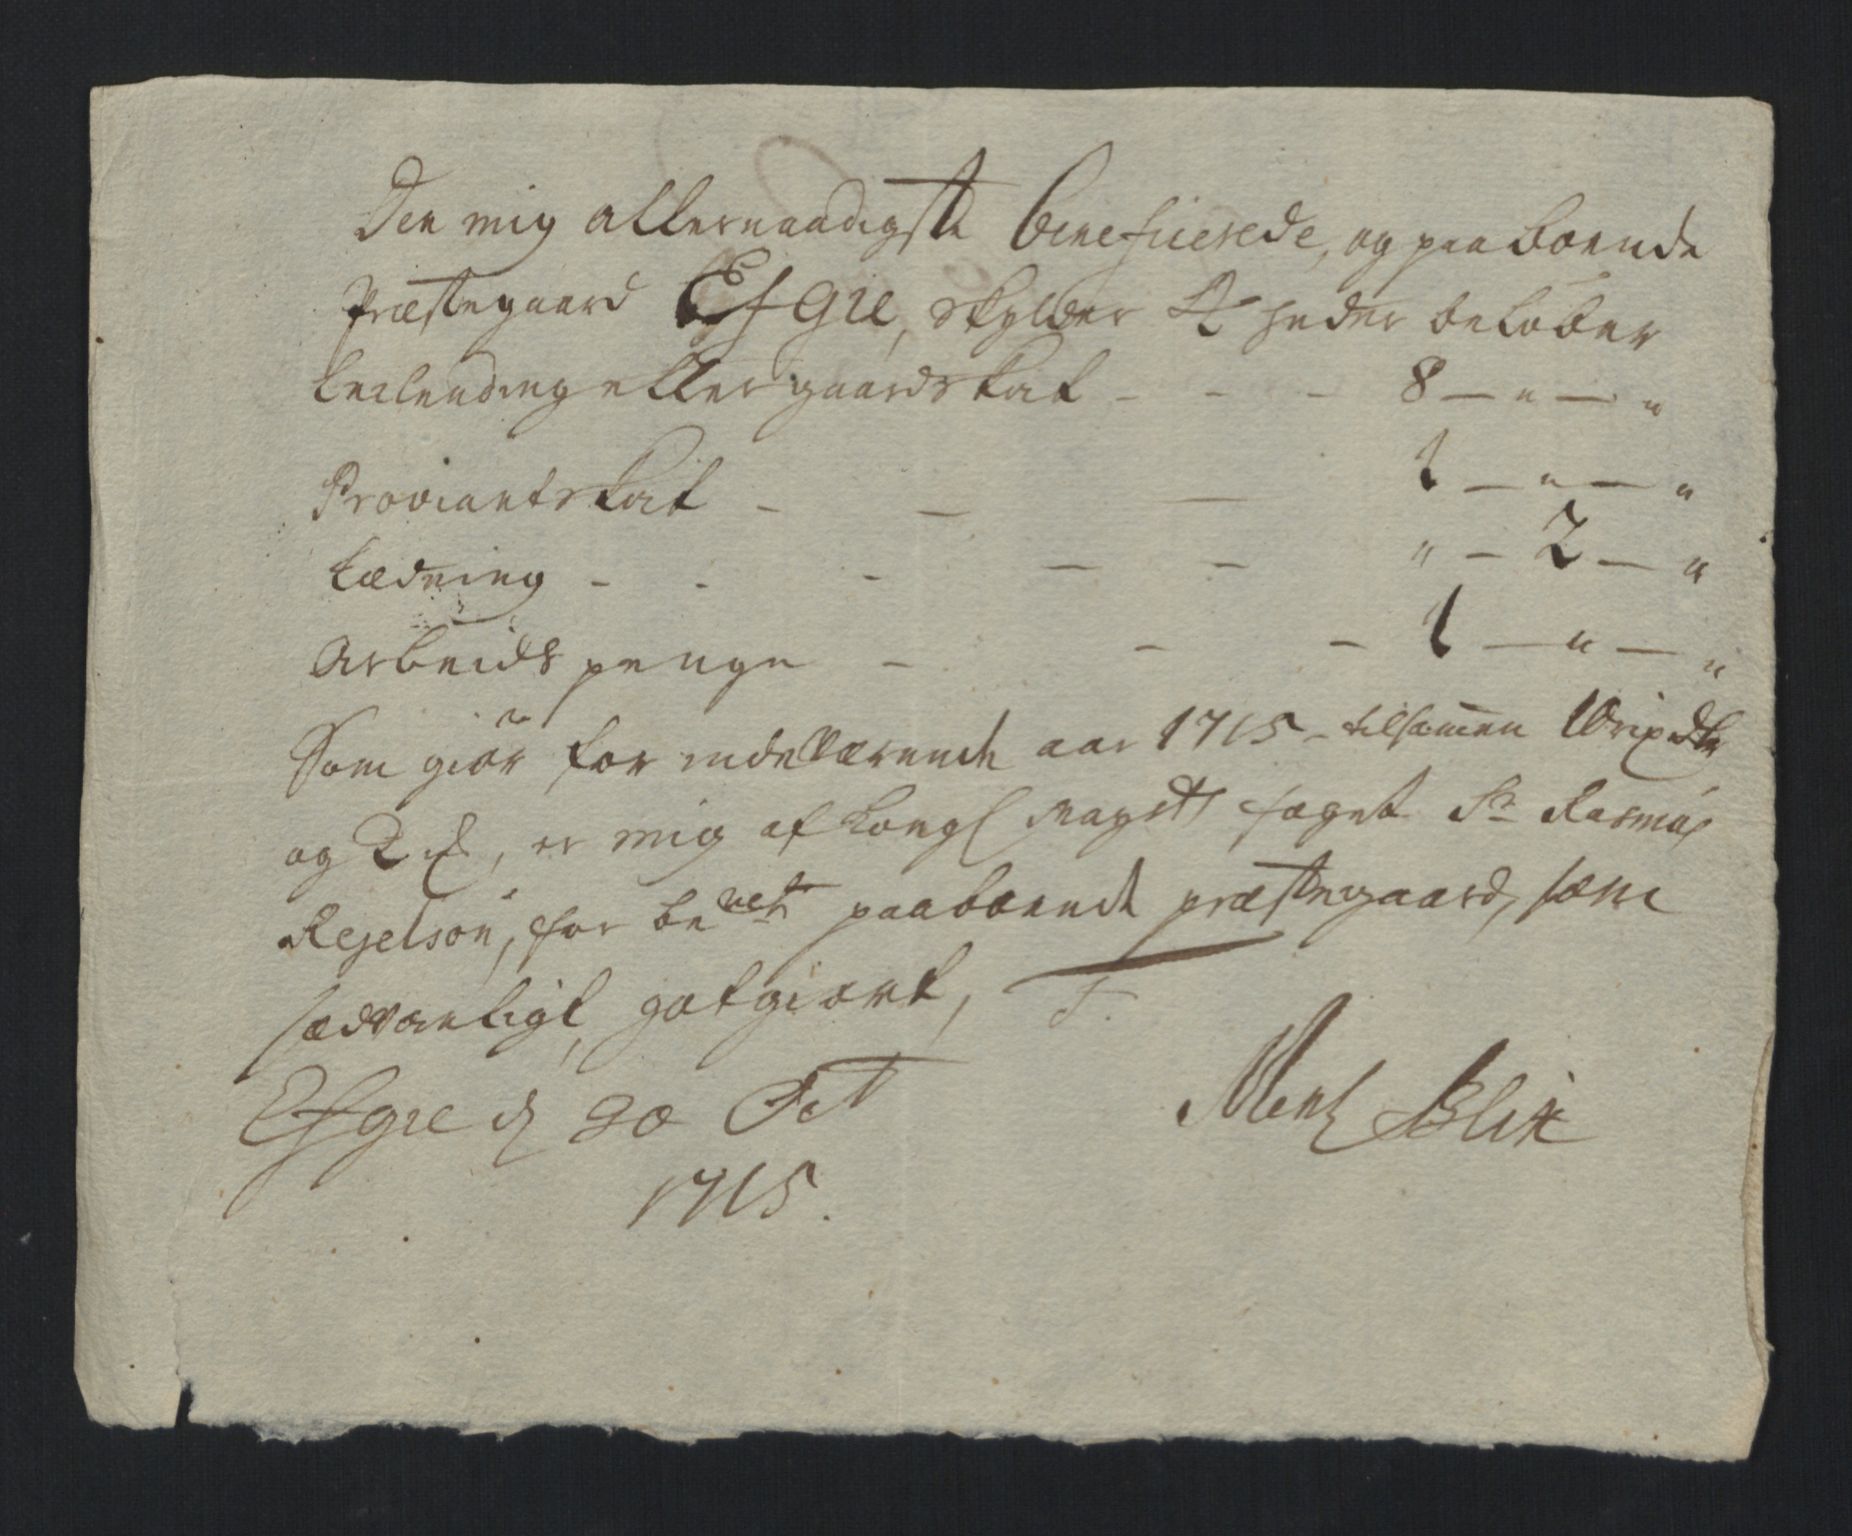 Den mig allernaadigste beneficerede, og paaboende
Præstegaard Efgie, skylder 4 heder beløber
Leilending eller gaardskat - - - 8 — " — "
Proviantskat - — — 1 — " — "
Lædning - - - — — " — 2 — "
Arbeids penge - - - 1 — " — "
Som giør for indeværende aar 1715 - tilsamen 10 rixdlr
og 2 , er mig af Kongl Mayst foget Sr Rasmus
Rejelson, for be paaboende præstegaard, som
sædvanligt, gotgiort, T.
Efgie d 30 Oct
1715.
Mentz Blix